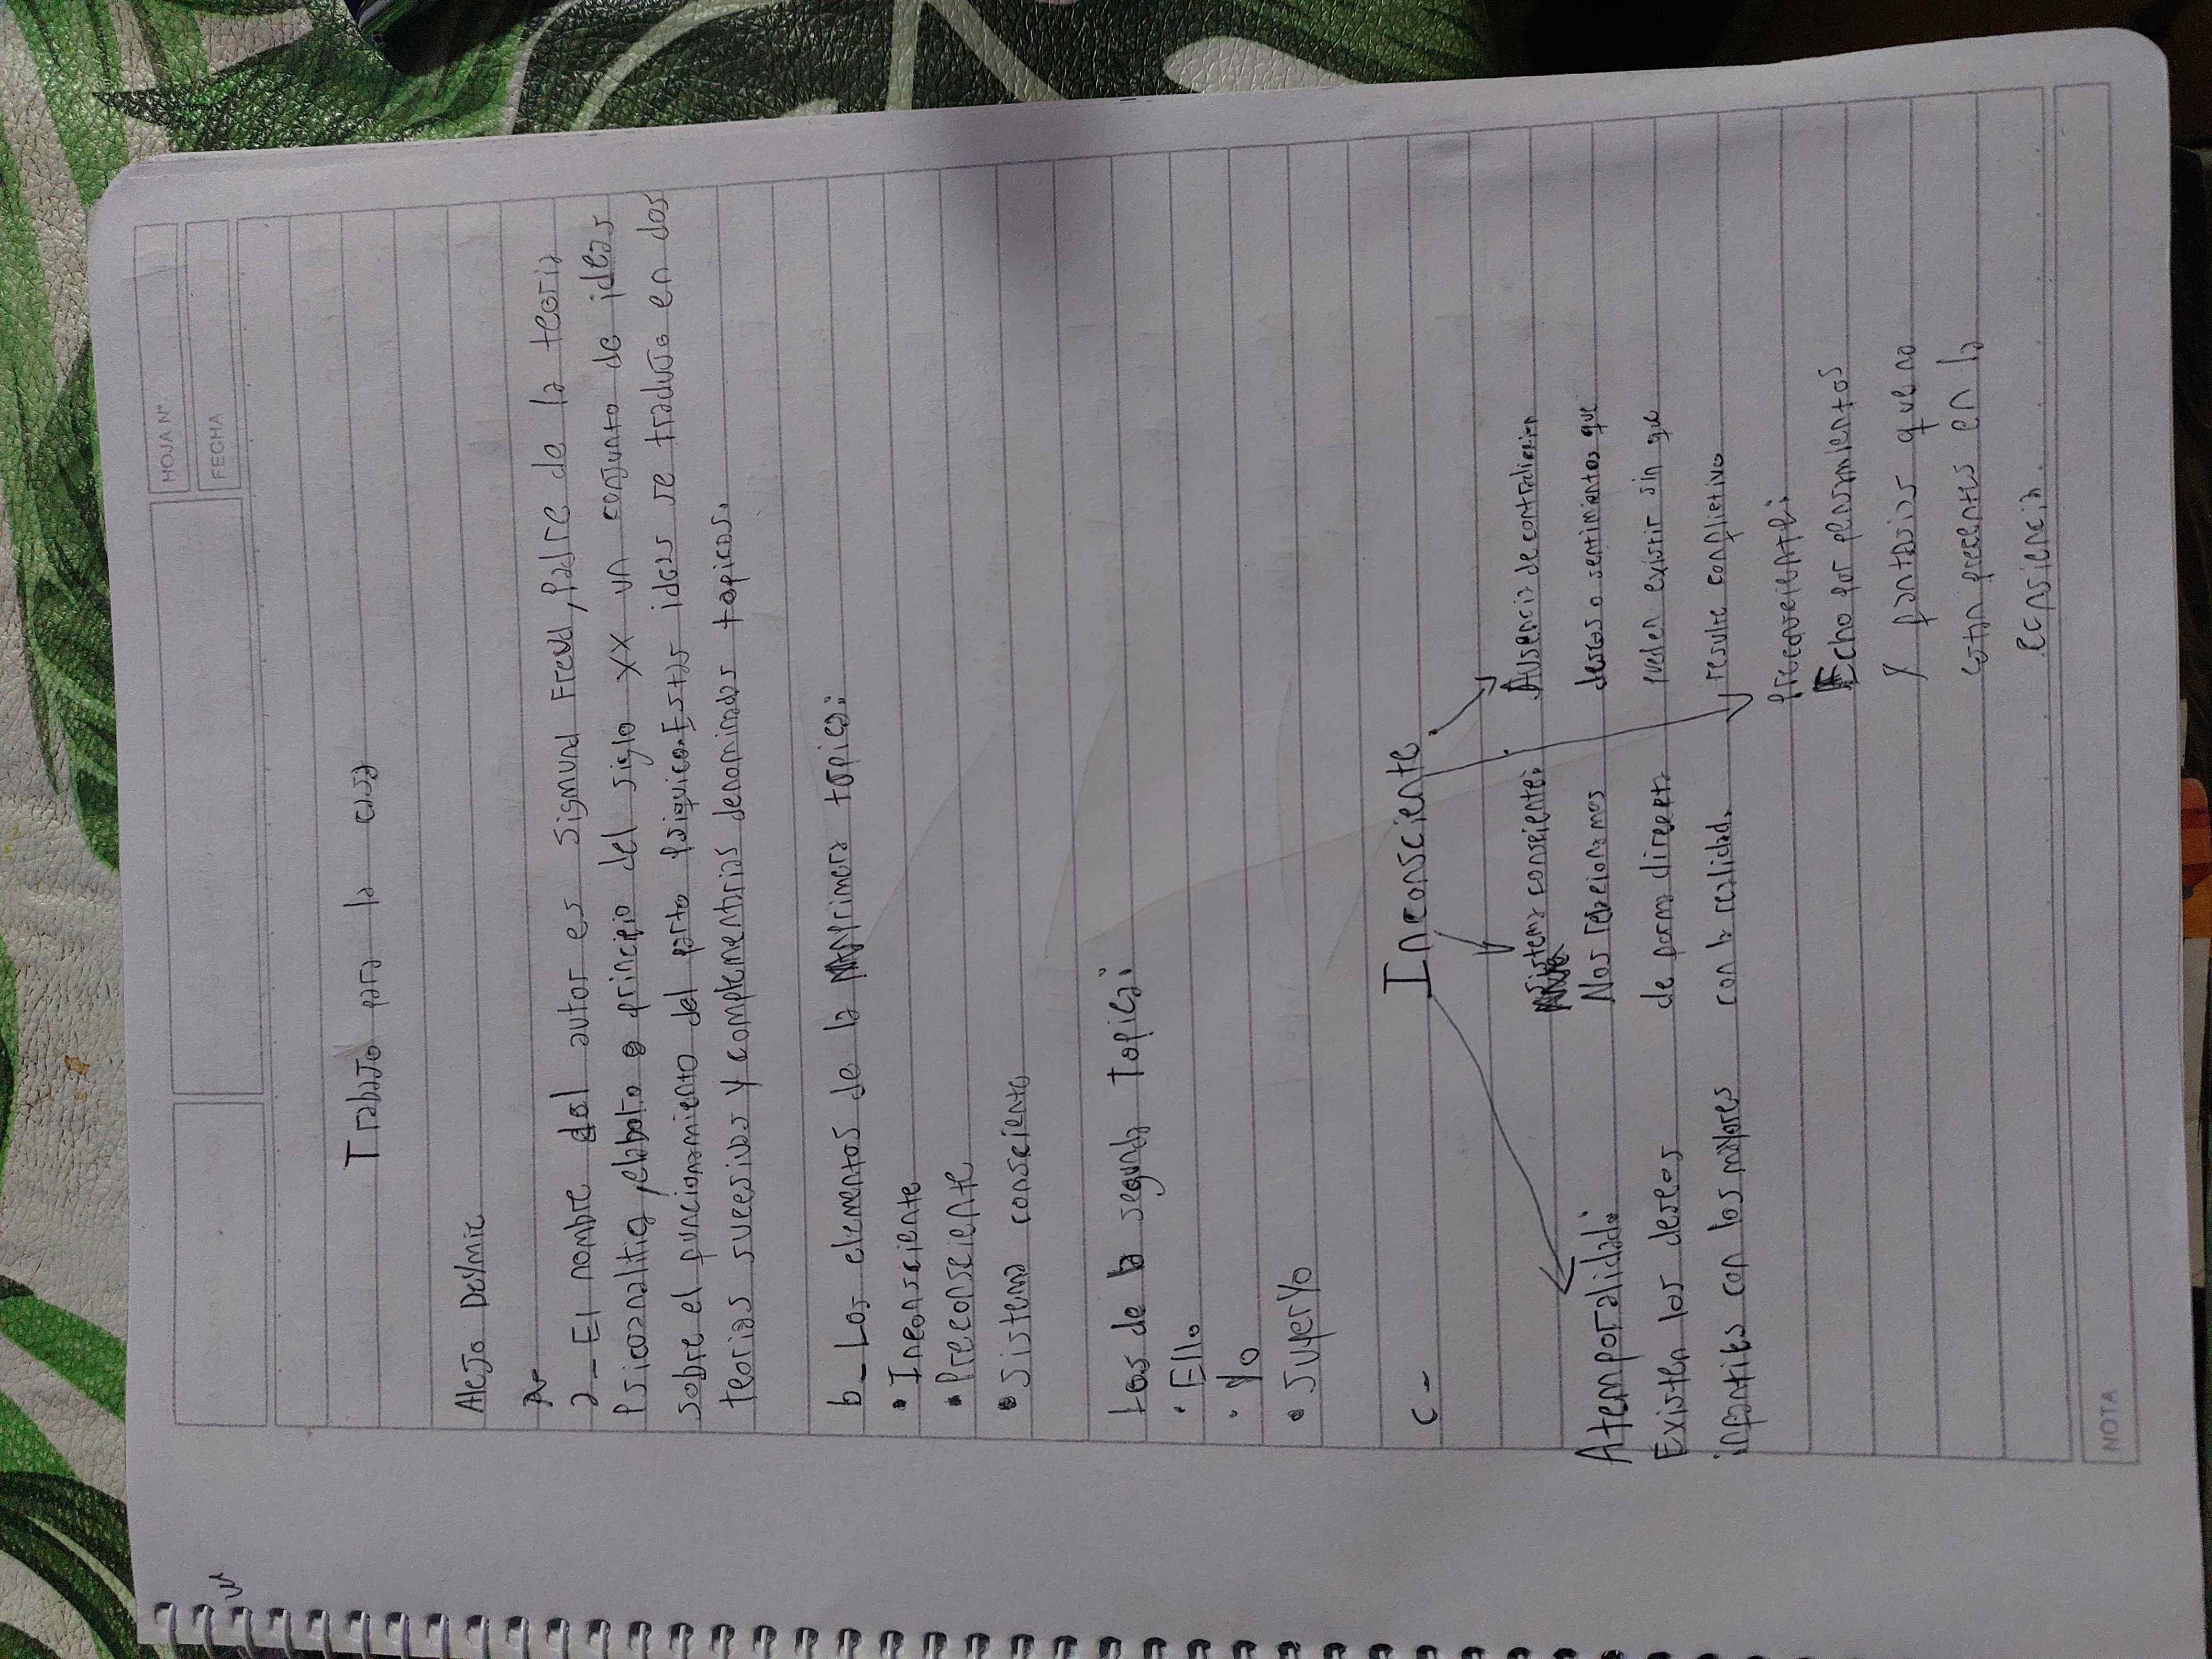 HOJA Nº
FECHA
Trabajo para la casa
Alejo Deymie
a_ El nombre del autor es Sigmund Freud, Padre de la teoria
Psicoanalitica, elaboto a principio del siglo XX un conjunto de ideas
sobre el funcionamiento del parto psiquico. Estas ideas se tradujo en dos
teorias sucesivas y complementrias denominadas topicas.
b_ Los elementos de la primera topica:
• Inconsciente
• Preconsciente
• Sistema consciente
Las de la segunda Topica:
• Ello
• Yo
• SuperYo
c-
Inconsciente
Atemporalidad:
Existen los deseos
infantiles con los mayores
sistema consciente:
Nos relacionamos
de forma directa
con la realidad.
Ausencia de contradiccion
deseos o sentimientos que
pueden existir sin que
resulte conflictivo
Echo por pensamientos
y fantasias que no
estan precentes en la
consiencia.
NOTA